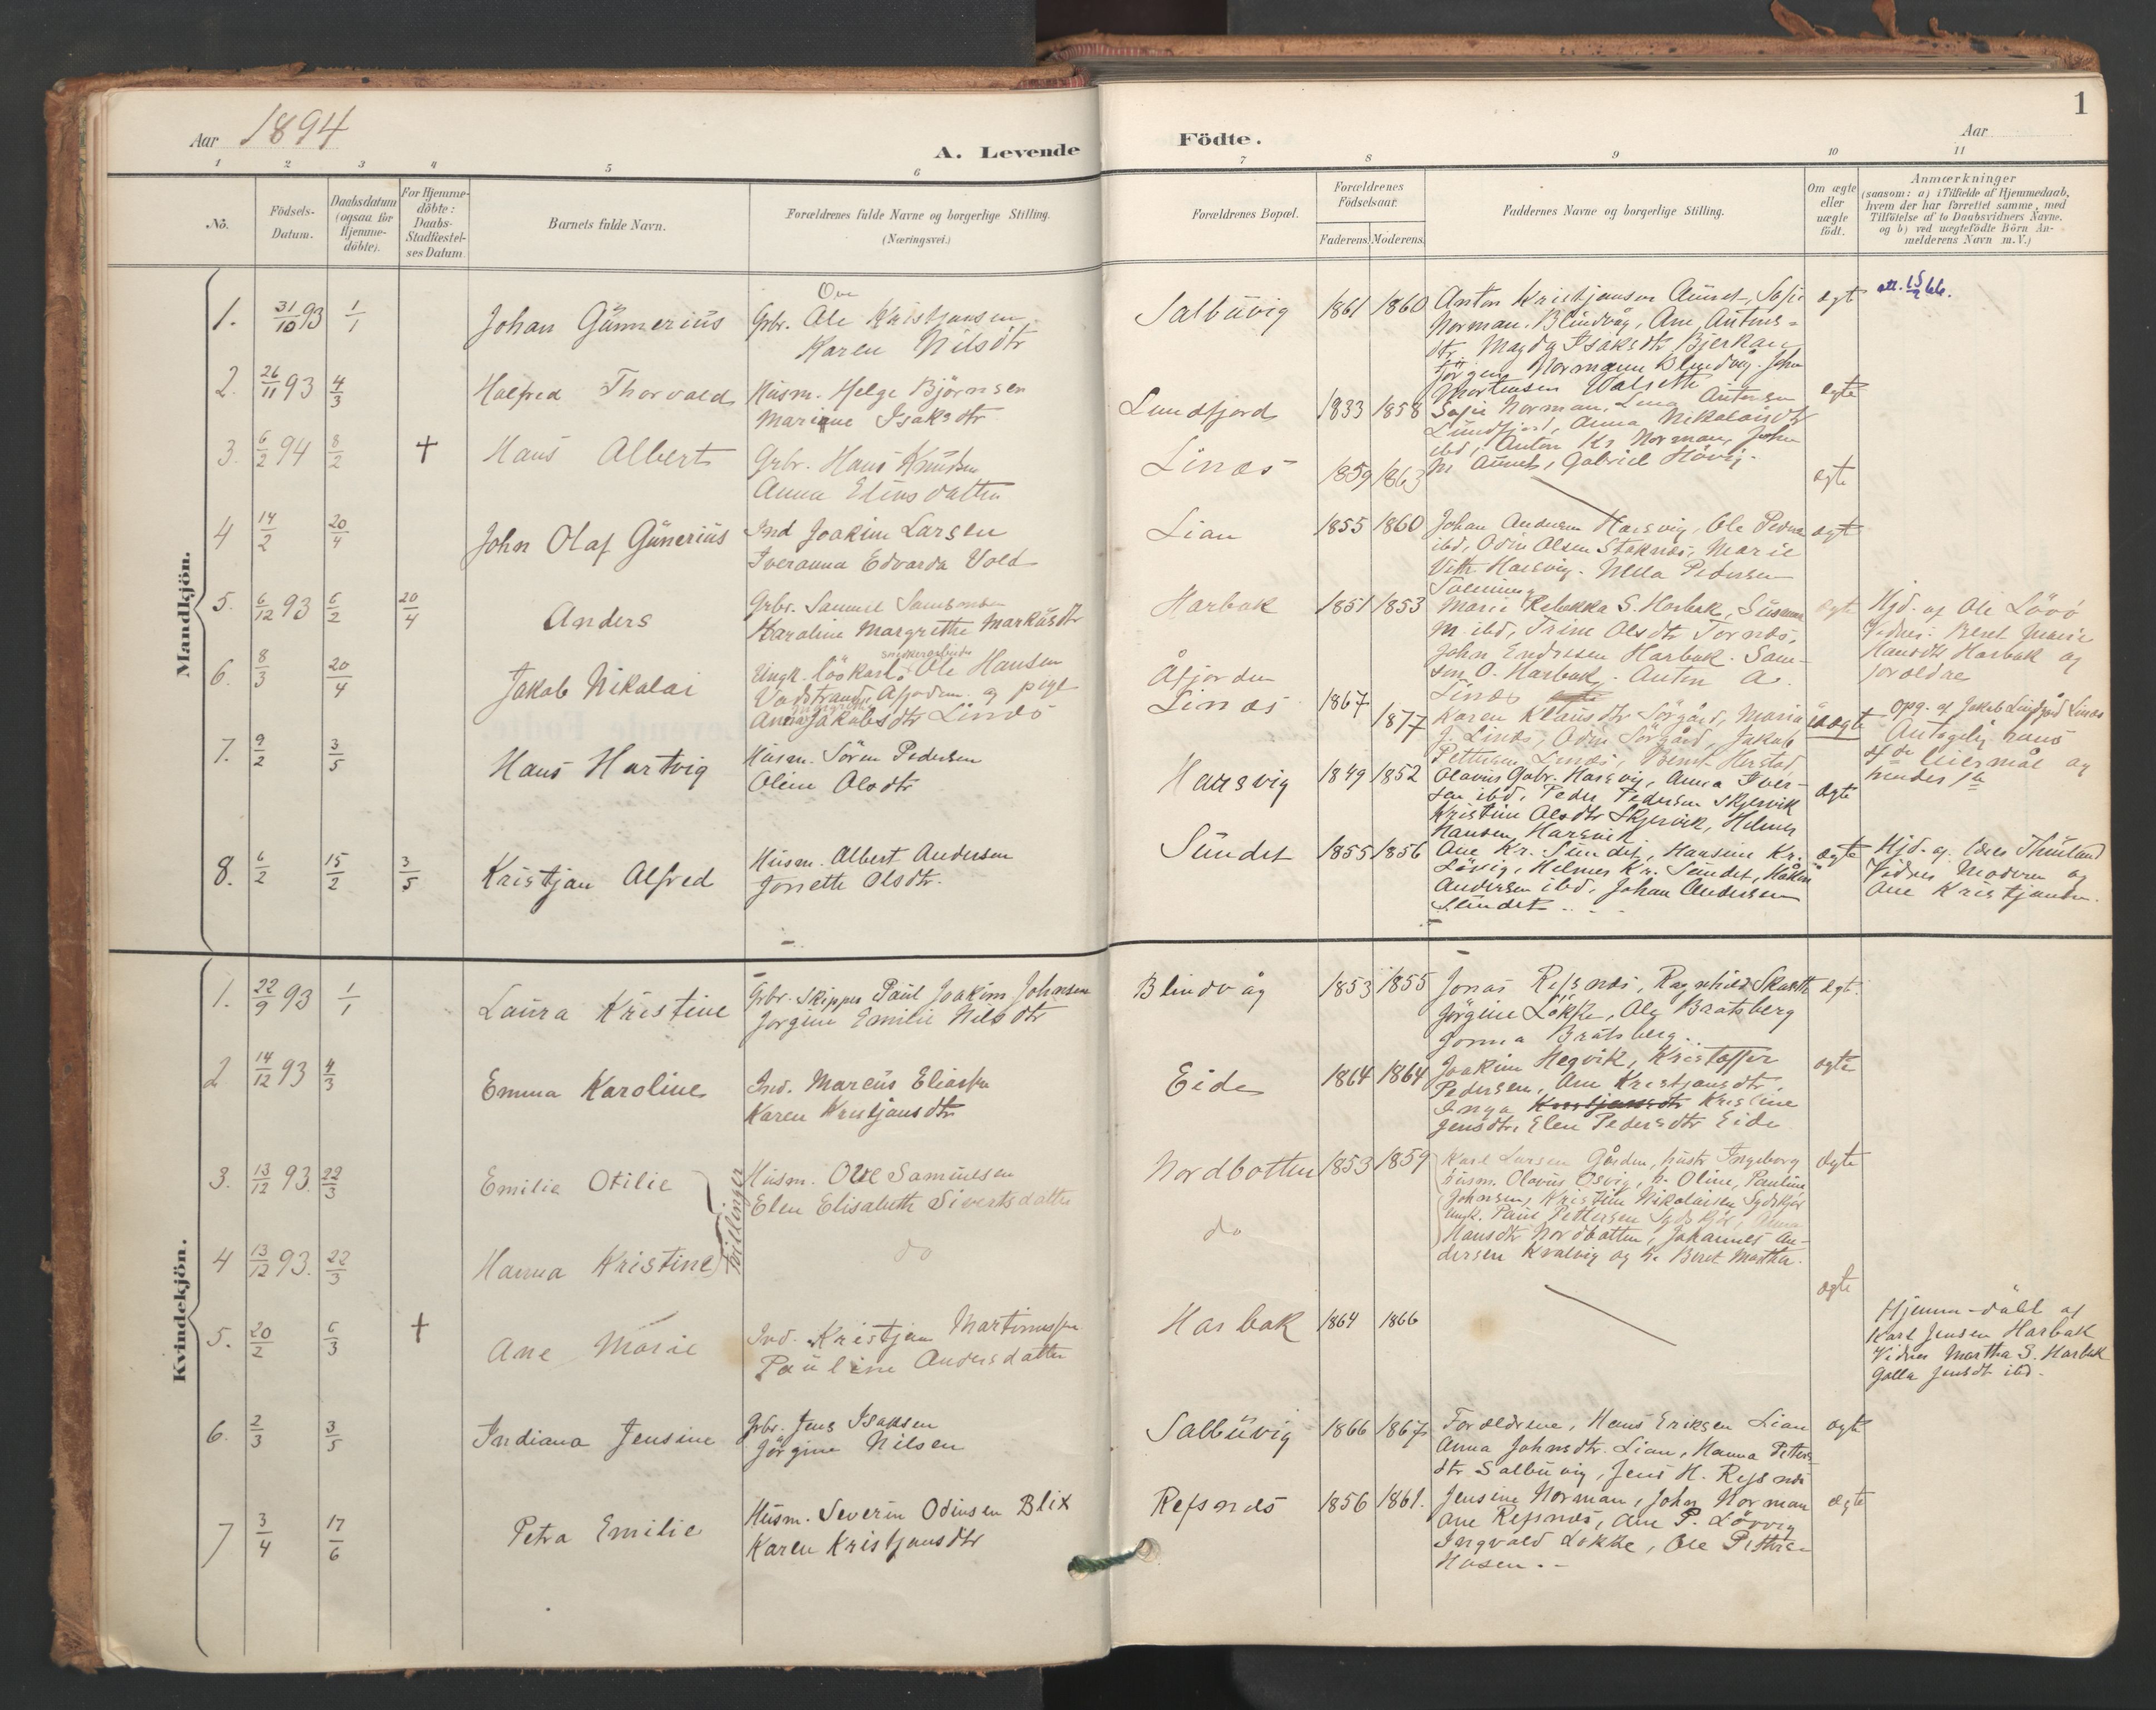 1
Aar 1894
A. Levende
Födte.
Aar
1 2 3 4 5 6 7 8 9 10 11
No.
Födsels-
Datum.
Daabsdatum
(ogsaa for
Hjemme-
döbte).
For Hjemme-
döbte:
Daabs-
Stadfæstel-
ses Datum.
Barnets fulde Navn.
Forældrenes fulde Navne og borgerlige Stilling.
(Næringsvei.)
Forældrenes Bopæl.
Forældrenes
Födselsaar.
Faderens.
Moderens.
Faddernes Navne og borgerlige Stilling.
Om ægte
eller
uægte
födt.
Anmærkninger
(saasom: a) i Tilfælde af Hjemmedaab,
hvem der har forrettet samme, med
Tilföielse af to Daabsvidners Navne,
og b) ved uægtefödte Börn An-
melderens Navn m. V.)
Mandkjön.
1. 31/10 93 1/1 Johan Günnerius
Ove
Grbr. Ole Kristjansen
Karen Nilsdtr
Salbüvig 1861 1860
Anton Kristjansen Aünet, Sofie
Norman. Blindvåg, Ane Antons-
dtr, Magda Isaksdtr Bjerkan
Jörgen Normann Blindvåg. John
Mortensen Valseth
ægte
att. 15/2 66.
2. 26/11 93 4/3 Halfred Thorvald
Husm. Helge Björnsen
Mariane Isaksdtr
Lundfjord 1833 1858
Sofie Norman, Lina Antonsen
Lundfjord, Anna Nikolaisdtr
ibd, Anton Kr Norman, John
M. Aünet, Gabriel Hövig.
ægte
3. 6/2 94 8/2 † Hans Albert
Grbr. Hans Knudsen
Anna Elinsdatter
Linæs 1859 1863
ægte
4 14/2 20/4 John Olaf Günerius
Ind Joakim Larsen
Iveranna Edvarda Vold
Lian 1855 1860
Johan Andersen Harsvig, Ole Peder
ibd, Odin Olsen Stoknæs, Marie
Vith. Harsvig. Ulla Pedersen
ægte
5. 6/12 93 6/2 20/4 Anders
Grbr. Samuel Samsonsen
Karoline Margrethe Markusdtr
Harbak 1851 1853
Marie Rebekka S. Harbak, Susanne
M. ibd, Trine Olsdtr Tornæs,
John Endresen Harbak. Sam-
son O. Harbak. Anton A.
Linæs
ægte
Hjd. af Ole Lövö
Vidner: Beret Marie
Hansdtr Harbak og
forældre
6. 8/3 20/4 Jakob Nikolai
Ungk. Ole Hansen
Vadstrand, Afjorden. og pige
Anna Jakobsdtr Linæs
Åfjorden
Linæs 1867
1877
Karen Klausdtr Sörgård, Maria
J. Linæs, Odin Sörgård, Jakob
Pettersen Linæs, Bernt Herstad
uægte
opg. af Jakob Lines
Antagelig hans
4de leiermål og
hendes 1ste
7. 9/2 3/5 Hans Hartvig
Husm. Sören Pedersen
Oline Olsdtr
Haasvig 1849 1852
Olavus Gabr. Harsvig, Anna Iver-
sen ibd, Peder Pedersen Skjervik
Kristine Olsdtr Skjervik, Helmer
Hansen Harsvik
ægte
8. 6/2 15/2 3/5 Kristjan Alfred
Husm. Albert Andersen
Jonette Olsdtr.
Sündet 1855 1856
Ane Kr. Sundet, Hansine Kr.
Lövig, Helmer Kr. Sundet, Håkon
Andersen ibd, Johan Andersen
Sündet
ægte
Hjd. af lærer Thuland
Vidner Moderen og
Ane Kristjansen.
Kvindekjön.
1. 22/9 93 1/1 Laura Kristine
Grbr. Skipper Paul Joakim Johnsen
Jorgine Emilie Nilsdtr
Blindvåg 1853 1855
Jonas Refsnæs, Ragnhild Skartth
Jörgine Løkke, Ole Bratsberg
Jonna Bratsberg
ægt.
2 14/12 93 4/3 Emma Karoline
Ind. Marcus Eliassen
Karen Kristjansdtr
Eide 1864 1864
Joakim Hegvik, Kristoffer
Pedersen, Ane Kristjansdtr,
Inga Kristjansdtr Kristine
Jensdtr, Elen Pedersdtr Eide
ægte
3. 13/12 93. 22/3 Emilie Otilie
tvillinger
Husm. Ole Samuelsen
Elen Elisabeth Sivertsdatter
Nordbotten 1853 1859
Karl Larsen Gården, hustr Ingeborg
husm. Olavus Osvig, h. Oline, Pauline
Johnsen, Kristine Nikolaisen Sydskjör
ungk. Paul Pettersen Sydskjör, Anna
Hansdtr Nordbotten, Johannes An-
dersen Kvalvig og h. Beret Martha.
ægte
4 13/12 93. 22/3 Hanna Kristine
do
do
ægte
5. 20/2 6/3 † Ane Marie
Ind. Kristjan Martinussen
Pauline Andersdatter
Harbak 1864 1866
Hjemme-döbt af
Karl Jensen Harbak
Vidner Martha S. Harbak
Golla Jensdt ibd.
6. 2/3 3/5 Indiana Jensine
Grbr. Jens Isaksen
Jörgine Nilsen
Salbüvig 1866 1867
Forældrene, Hans Eriksen Lian
Anna Johnsdtr. Lian, Hanna Petters-
dtr Salbüvig, Jens H. Refsnæs
ægte
7 3/4 17/6 Petra Emilie
Husm. Severin Odinsen Blix
Karen Kristjansdtr
Refsnæs 1856 1861.
Jensine Norman, John Norman
Ane Refsnæs, Ane P. Lövvig
Ingvald Løkke, Ole Petter
Hosen.
ægte